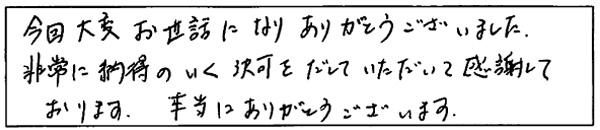 今回大変お世話になりありがとうございました.
非常に納得のいく決可をだしていただいて感謝して
おります. 本当にありがとうございます.